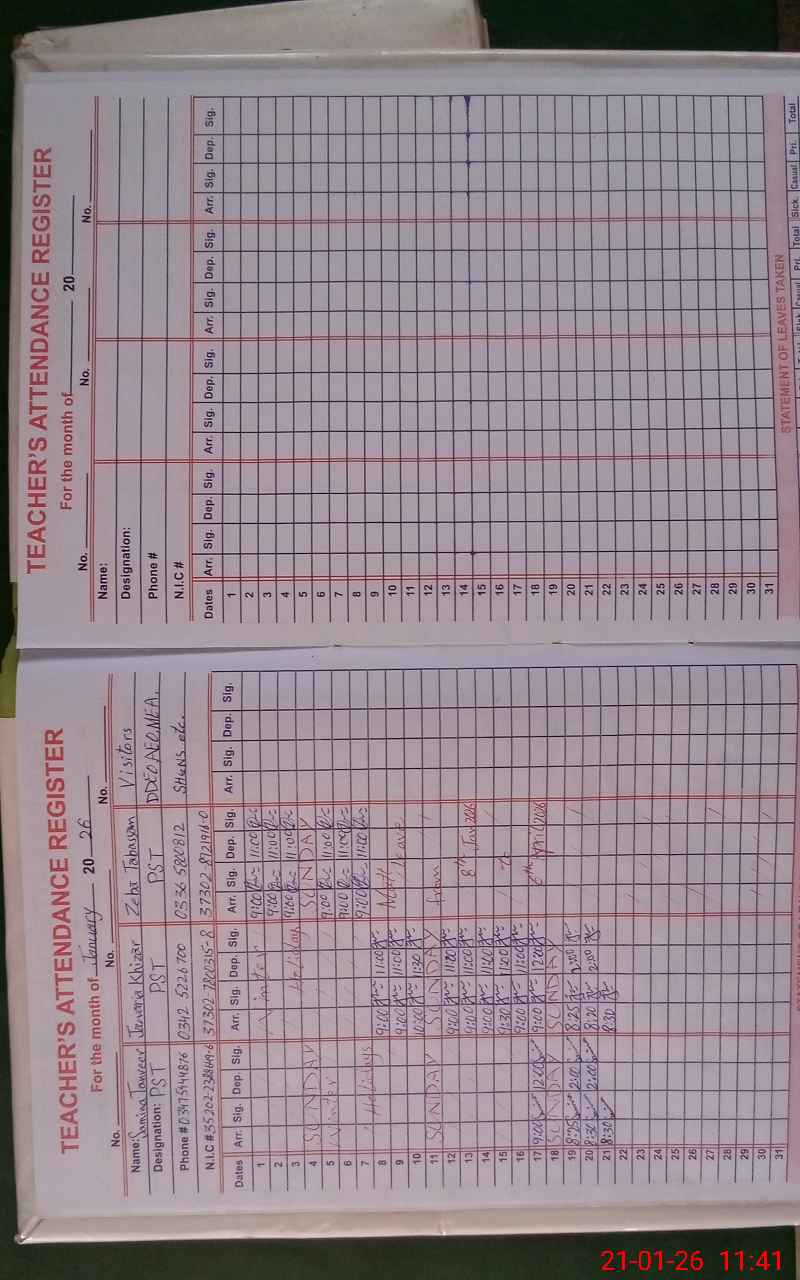 TEACHER'S ATTENDANCE REGISTER
For the month of January 20 26
No. No. No. No.
Name: Samina Tanveer Javaria Khizar Zebr Tabassam Visitors
Designation: PST PST PST DDEO AEO, MEA,
Phone # 03475944876 0342 5226700 0336 5800812 SHGNS etc.
N.I.C # 37302-7800315-8 37302-8121916-0
Dates Arr. Sig. Dep. Sig. Arr. Sig. Dep. Sig. Arr. Sig. Dep. Sig. Arr. Sig. Dep. Sig.
1 Winter 9:00 11:00
2 9:00 11:00
3 Holidays 9:00 11:00
4 SUNDAY SUNDAY
5 Winter 9:00 11:00
6 9:00 11:00
7 Holidays 9:00 11:00
8 9:00 11:00
9 9:00 11:00 leave
10 10:00 11:30
11 SUNDAY SUNDAY from
12 9:00 11:00
13 9:00 11:00 8th Jan 2026
14 9:00 11:00
15 9:30 11:00 To
16 9:00 11:00
17 9:00 12:00 9:00 12:00 April 2026
18 SUNDAY SUNDAY
19 8:25 2:00 8:25 2:00
20 8:30 2:00 8:20 2:00
21 8:30 8:30
22
23
24
25
26
27
28
29
30
31
TEACHER'S ATTENDANCE REGISTER
For the month of 20
No. No. No.
Name:
Designation:
Phone #
N.I.C #
Dates Arr. Sig. Dep. Sig. Arr. Sig. Dep. Sig. Arr. Sig. Dep. Sig. Arr. Sig. Dep. Sig.
1
2
3
4
5
6
7
8
9
10
11
12
13
14
15
16
17
18
19
20
21
22
23
24
25
26
27
28
29
30
31
STATEMENT OF LEAVES TAKEN
Pri. Total Sick. Casual Pri. Total
21-01-26 11:41